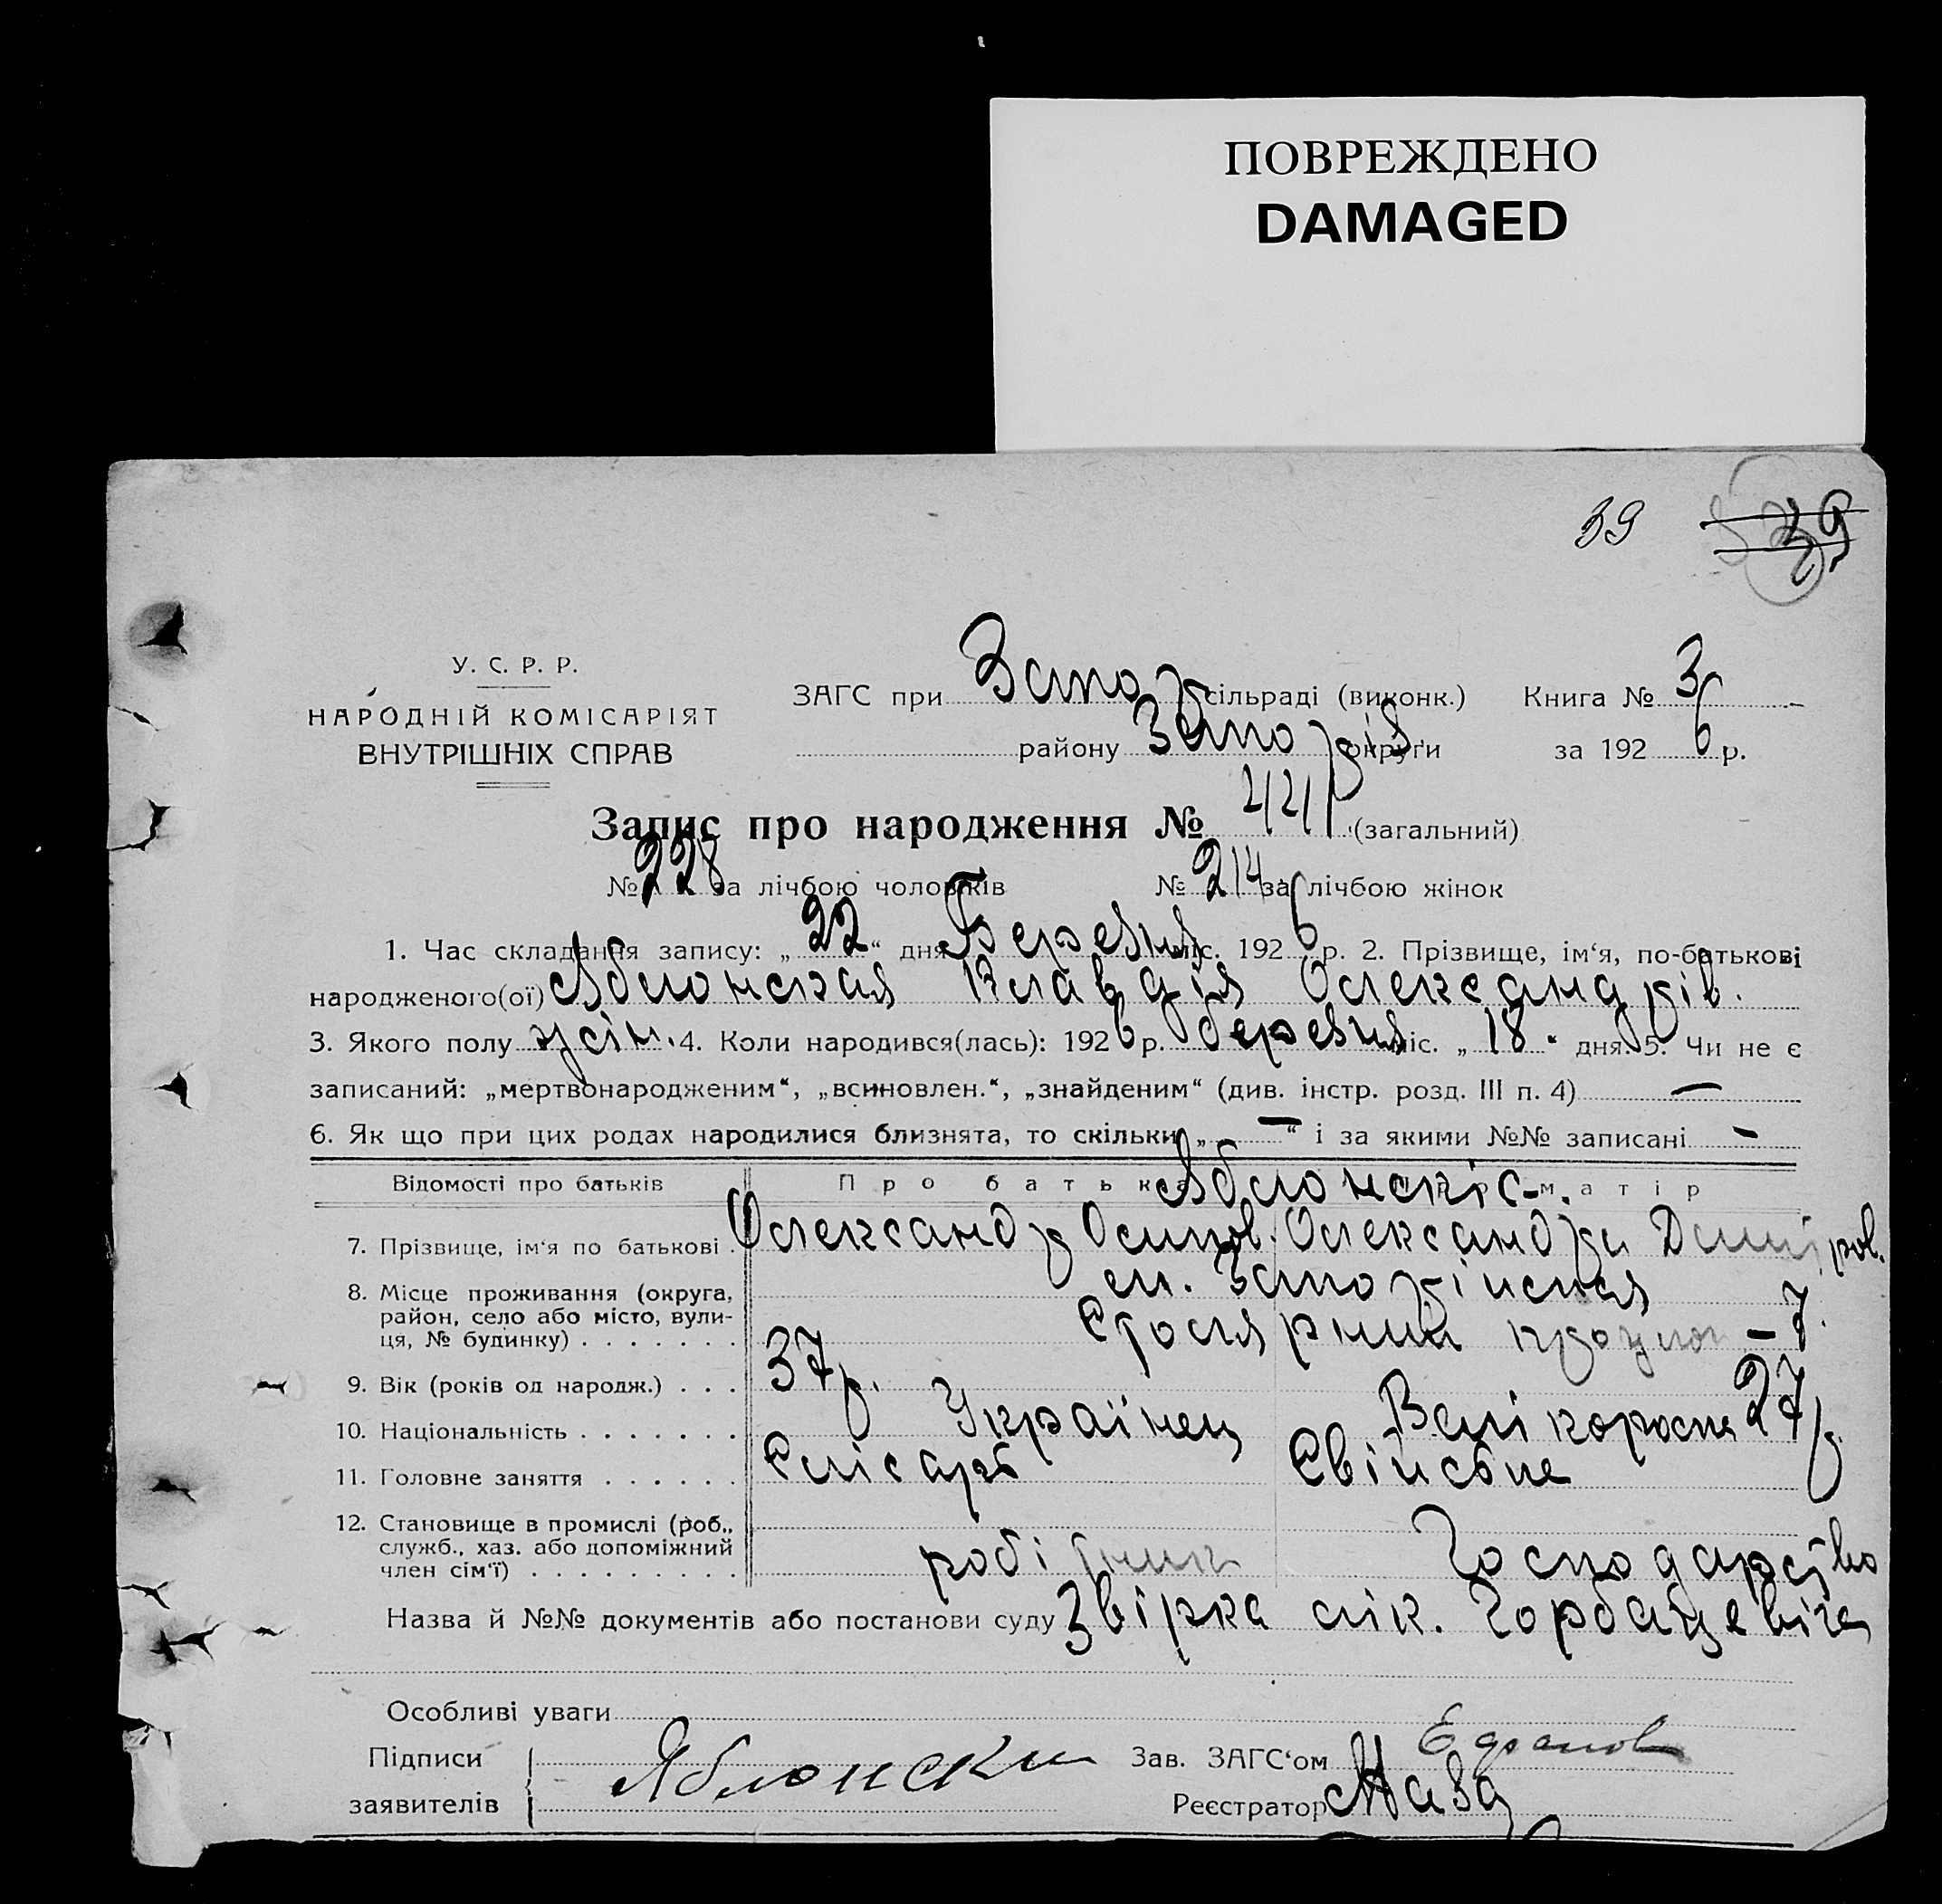 ПОВРЕЖДЕНО
DAMAGED
39 39
У. С. Р. Р.
НАРОДНІЙ КОМІСАРІЯТ
ВНУТРІШНІХ СПРАВ
ЗАГС при Запор сільраді (виконк.) Книга № 3
району Запоріз округи за 1926 р.
Запис про народження № 442 (загальний)
№ 228 за лічбою чоловіків № 214 за лічбою жінок
1. Час складання запису: „22“ дня Березня міс. 1926 р. 2. Прізвище, ім‘я, по-батькові
народженого(ої) Яблонская Клавдія Олександрів.
3. Якого полу жін. 4. Коли народився(лась): 1926 р. березня міс. „18“ дня. 5. Чи не є
записаний: „мертвонародженим“, „всиновлен.“, „знайденим“ (див. інстр. розд. III п. 4) —
6. Як що при цих родах народилися близнята, то скільки „—“ і за якими №№ записані —
Відомості про батьків Про батька Яблонскіє матір
7. Прізвище, ім‘я по батькові Олександр Осипов. Олександра Дмитров.
8. Місце проживання (округа, район, село або місто, вулиця, № будинку) ст. Запоріжная
Столярний — 7.
9. Вік (років од народж.) 37 р. 27 р.
10. Національність Українец Велікоросіяне
11. Головне заняття Слісарь Свійське
12. Становище в промислі (роб., служб., хаз. або допоміжний член сім‘ї) робітник Господарство
Назва й №№ документів або постанови суду Звірка лік. Горбацевіча
Особливі уваги
Підписи заявителів Яблонски
Зав. ЗАГС‘ом
Реєстратор